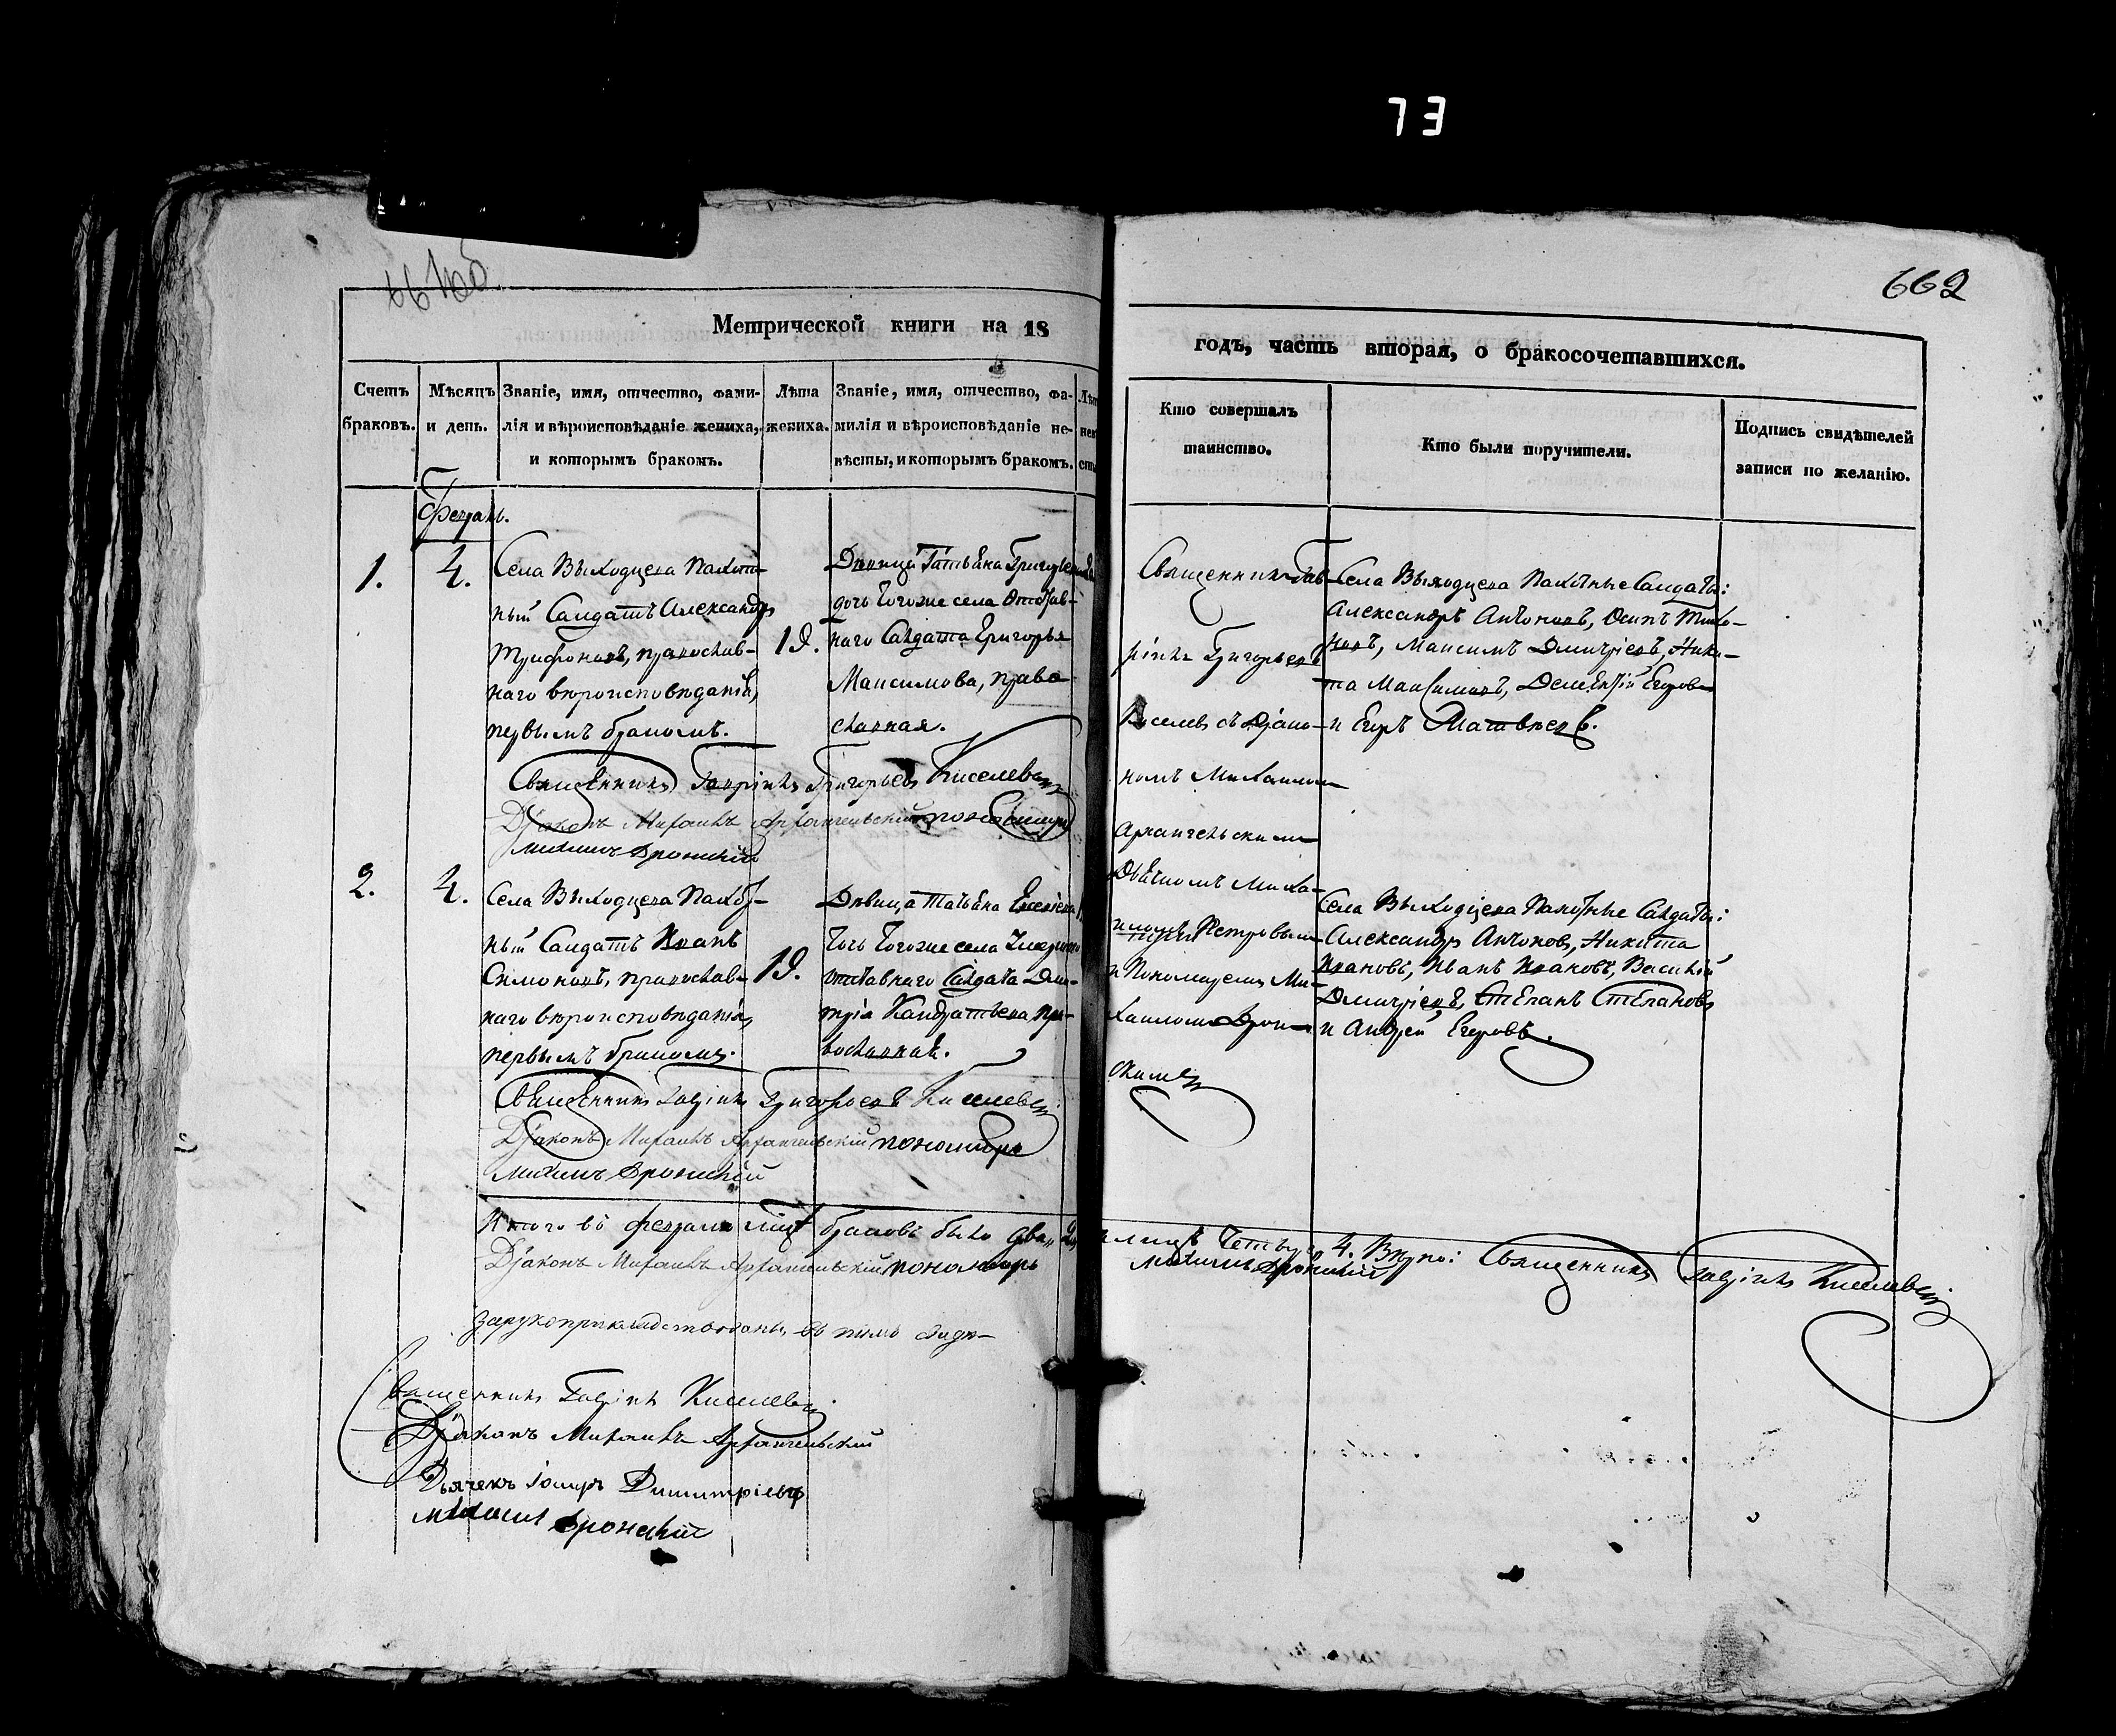 73
661об.
662
Метрической книги на 18
годъ, часть вторая, о бракосочетавшихся.
Счетъ браковъ.
Мѣсяцъ и день.
Званіе, имя, отчество, фами-
лія и вѣроисповѣданіе жениха,
и которымъ бракомъ.
Лѣта
жениха.
Званіе, имя, отчество, фа-
милія и вѣроисповѣданіе не-
вѣсты, и которымъ бракомъ.
Кто совершалъ
таинство.
Кто были поручители.
Подпись свидѣтелей
записи по желанію.
1.
4.
Села Выходцева Пахот-
ный Салдатъ Александръ
Трифоновъ, православ-
наго вѣроисповѣданія,
первымъ бракомъ.
19.
Дѣвица Татьяна Григорьева
дочь тогоже села Отстав-
наго Салдата Григорья
Максимова, право-
славная.
Священникъ Гав-
ріилъ Григорьевъ
Киселевъ съ Діако-
номъ Михаиломъ
Архангельскимъ
Дьячкомъ
Петровымъ
и Пономаремъ Ми-
хаиломъ Дрон-
скимъ
Села Выходцева Пахотные Салдаты:
Александръ Антоновъ, Осипъ Тихо-
новъ, Максимъ Дмитріевъ, Ники-
та Максимовъ, Дементій Егоровъ
и Егоръ Матвѣевъ.
Священникъ Гавріилъ Григорьевъ Киселевъ
Діаконъ Михаилъ Архангельскій пономарь
Михаилъ Дронскій
2.
4.
Села Выходцева Пахот-
ный Салдатъ Иванъ
Симоновъ, православ-
наго вѣроисповѣданія,
первымъ бракомъ.
19.
Дѣвица Татьяна
дочь тогоже села
отставнаго Салдата Дми-
трія Кандратьева пра-
вославная.
Села Выходцева Пахотные Салдаты:
Александръ Антоновъ, Никита
Ивановъ, Иванъ Ивановъ, Василій
Дмитріевъ, Степанъ Степановъ
и Андрей Егоровъ.
Священникъ Гавріилъ Григорьевъ Киселевъ
Діаконъ Михаилъ Архангельскій пономарь
Михаилъ Дронскій
Итого въ февралѣ мцѣ браковъ было два, 2,
а лицъ четыре, 4. Вкупѣ: Священникъ Гавріилъ Киселевъ
Діаконъ Михаилъ Архангельскій пономарь
Михаилъ Дронскій
Священникъ Гавріилъ Киселевъ
Діаконъ Михаилъ Архангельскій
Дьячекъ Димитріевъ
Михаилъ Дронскій